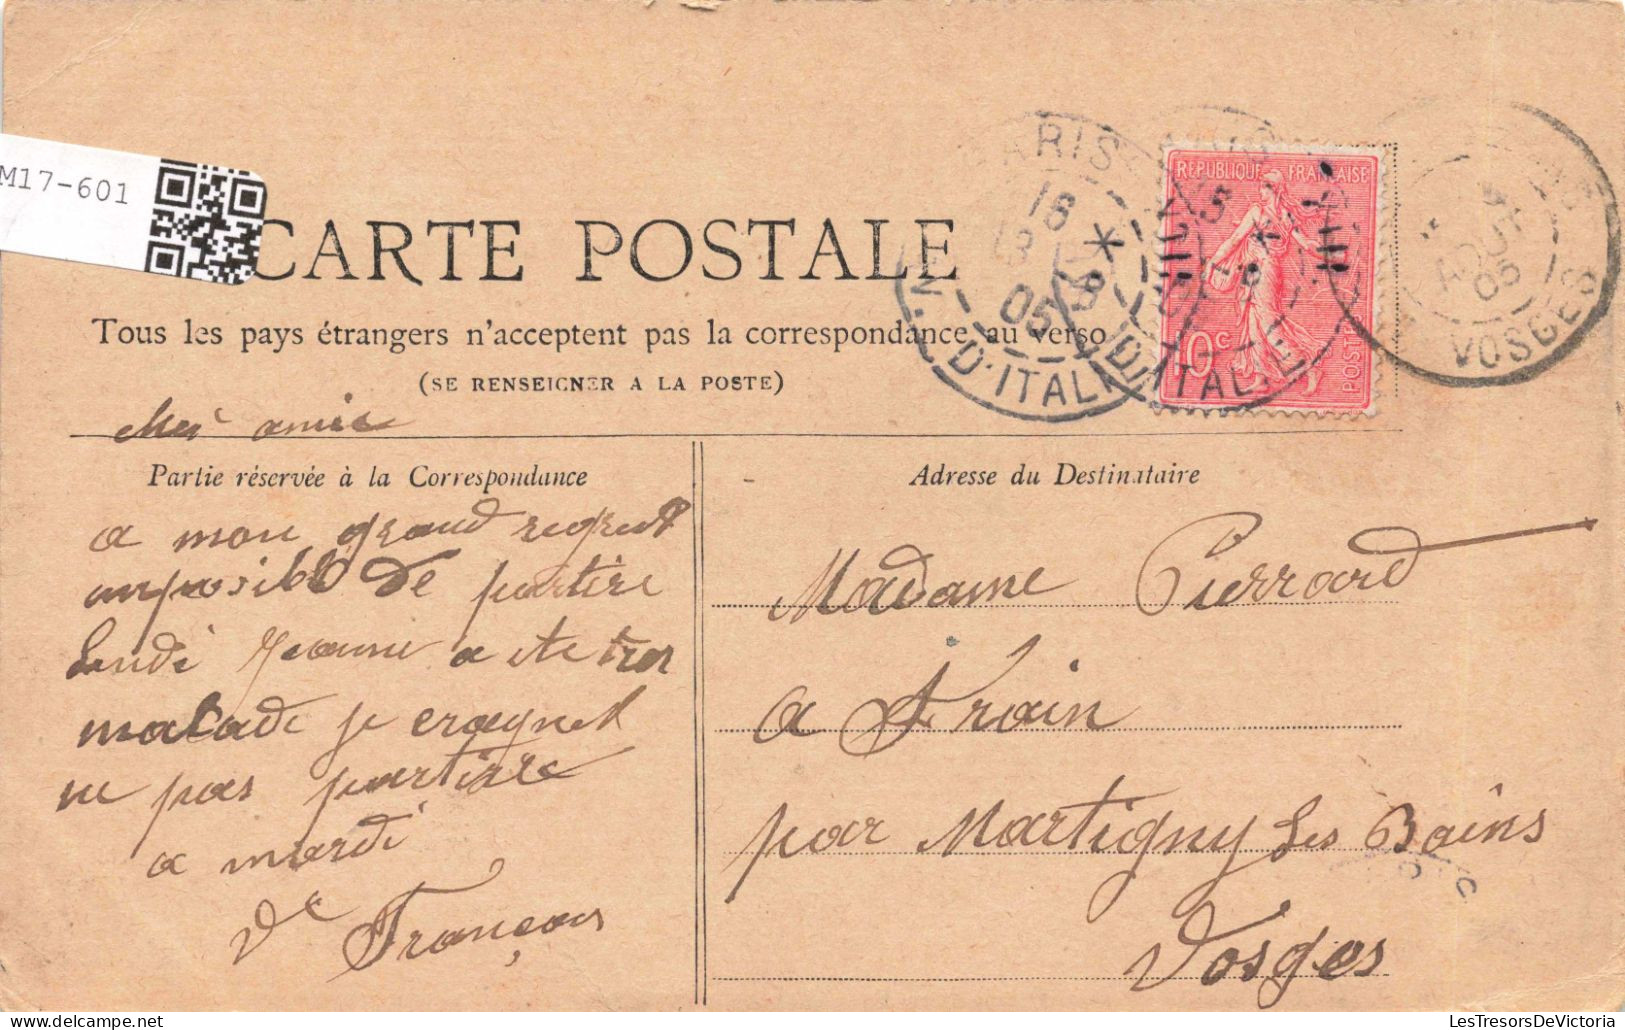 M17-601
CARTE POSTALE
Tous les pays étrangers n'acceptent pas la correspondance au verso
(SE RENSEIGNER A LA POSTE)
PARIS
18
05
D'ITALIE
D'ITALIE
REPUBLIQUE FRANÇAISE
10c
POSTES
AOUT
05
VOSGES
amie
Partie réservée à la Correspondance
a mon grand regret
imposible de partire
Lundi Jeanne a ete tres
malade je
ne pas partire
a mardi
François
Adresse du Destinataire
Madame Pierrard
a Frain
par Martigny Les Bains
Vosges
LesTresorsDeVictoria